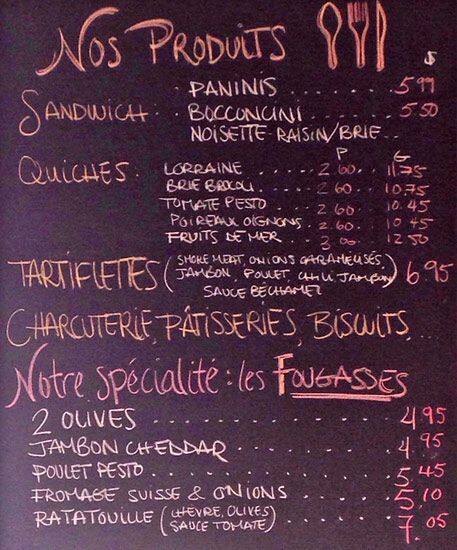 NOS PRODUITS
$
PANINIS ........ 5.99
SANDWICH. BOCCONCINI ........ 5.50
NOISETTE-RAISIN/BRIE...
P G
QUICHES. LORRAINE ..... 2.60 .. 11.75
BRIE BROCOLI ..... 2.60 .. 10.75
TOMATE PESTO ..... 2.60 .. 10.45
POIREAUX OIGNONS.. 2.60 .. 10.45
FRUITS DE MER .. 3.00 .. 12.50
TARTIFLETTES (SMOKE MEAT, ONIONS CARAMELISÉS, 6.95
JAMBON, POULET, CHILI, JAMBON)
SAUCE BÉCHAMEL
CHARCUTERIE, PÂTISSERIES, BISCUITS...
Notre spécialité : les FOUGASSES
2 OLIVES .............. 4.95
JAMBON CHEDDAR ......... 4.95
POULET PESTO ............ 5.45
FROMAGE SUISSE & ONIONS ...... 5.10
RATATOUILLE (CHEVRE, OLIVES) ..... 7.05
SAUCE TOMATE